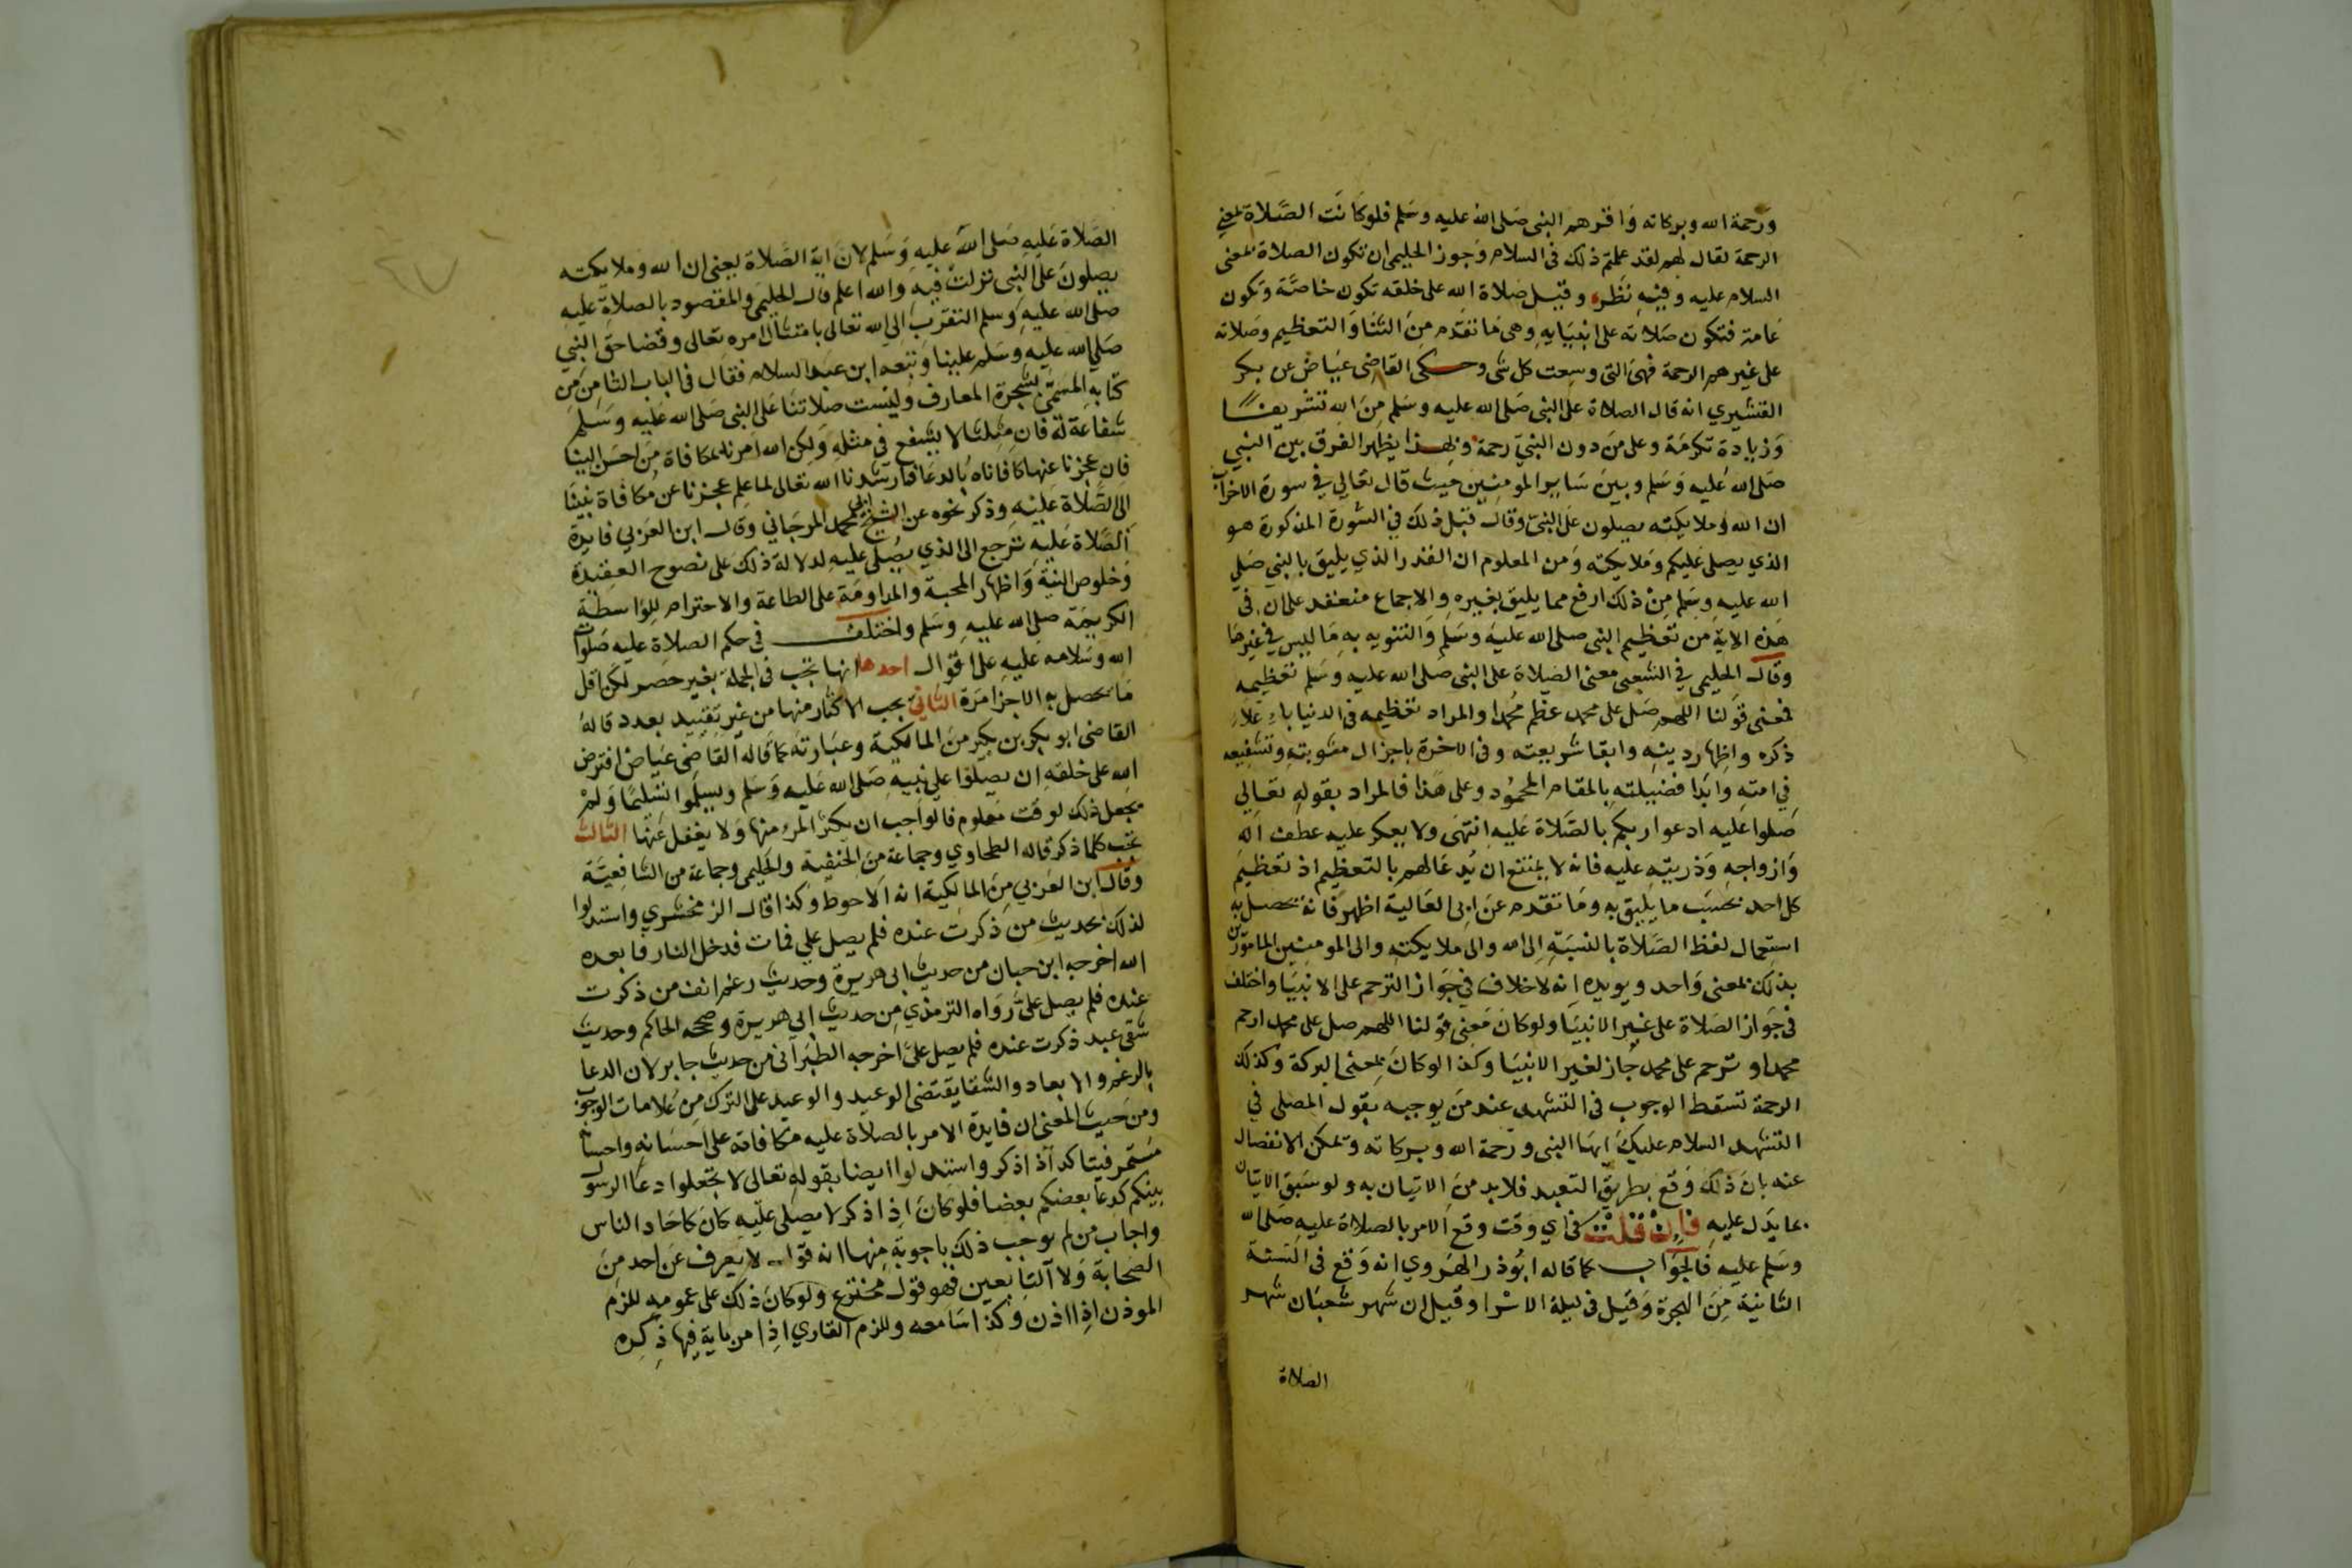 ورحمة الله وبركاته واقرهم النبى صلى الله عليه وسلم فلو كانت الصلاة بمعنى
الرحمة لقال لهم لقد علمتم ذلك فى السلام وجوز الحليمى ان تكون الصلاة بمعنى
السلام عليه وفيه نظر وقيل صلاة الله على خلقه تكون خاصة وتكون
عامة فتكون صلاته على انبيايه وهى ما تقدم من الثنا والتعظيم وصلاته
على غيرهم الرحمة فهى التى وسعت كل شى وحكى القاضى عياض عن بكر
القشيري انه قال الصلاة على النبى صلى الله عليه وسلم من الله تشريفا
وزيادة تكرمة وعلى من دون النبى رحمة وبهذا يظهر الفرق بين النبى
صلى الله عليه وسلم وبين ساير المومنين حيث قال تعالى فى سورة الاحزاب
ان الله وملايكته يصلون على النبى وقال قبل ذلك فى السورة المذكورة هو
الذي يصلى عليكم وملايكته ومن المعلوم ان القدر الذي يليق بالنبى صلى
الله عليه وسلم من ذلك ارفع مما يليق بغيره والاجماع منعقد على ان فى
هذه الاية من تعظيم النبى صلى الله عليه وسلم والتنويه به ما ليس فى غيرها
وقال الحليمى فى الشعب معنى الصلاة على النبى صلى الله عليه وسلم تعظيمه
فمعنى قولنا اللهم صل على محمد عظم محمدا والمراد تعظيمه فى الدنيا باعلاء
ذكره واظهار دينه وابقا شريعته وفى الاخرة باجزال مثوبته وتشفيعه
فى امته وابدا فضيلته بالمقام المحمود وعلى هذا فالمراد بقوله تعالى
صلوا عليه ادعوا ربكم بالصلاة عليه انتهى ولا يعكر عليه عطف اله
وازواجه وذريته عليه فانه لا يمتنع ان يدعا لهم بالتعظيم اذ تعظيم
كل احد بحسب ما يليق به وما تقدم عن ابى العالية اظهر فانه يحصل به
استعمال لفظ الصلاة بالنسبة الى الله والى ملايكته والى المومنين المامورين
بذلك بمعنى واحد ويويده انه لا خلاف فى جواز الترحم على الانبيا واختلف
فى جواز الصلاة على غير الانبيا ولو كان معنى قولنا اللهم صل على محمد ارحم
محمدا و ترحم على محمد جاز لغير الانبيا وكذا لو كان بمعنى البركة وكذلك
الرحمة تسقط الوجوب فى التشهد عند من يوجبه بقول المصلى فى
التشهد السلام عليك ايها النبى ورحمة الله وبركاته ويمكن الانفصال
عنه بان ذلك وقع بطريق التعبد فلا بد من الاتيان به ولو سبق الاتيان
بما يدل عليه فان قلت فى اي وقت وقع الامر بالصلاة عليه صلى الله
وسلم عليه فالجواب كما قاله ابو ذر الهروي انه وقع فى السنة
الثانية من الهجرة وقيل فى ليلة الاسرا وقيل ان شهر شعبان شهر
الصلاة
الصلاة عليه صلى الله عليه وسلم لان اية الصلاة يعنى ان الله وملايكته
يصلون على النبى نزلت فيه والله اعلم قال الحليمى والمقصود بالصلاة عليه
صلى الله عليه وسلم التقرب الى الله تعالى بامتثال امره تعالى وقضا حق النبى
صلى الله عليه وسلم علينا وتبعه ابن عبد السلام فقال فى الباب الثامن من
كتابه المسمى بشجرة المعارف وليست صلاتنا على النبى صلى الله عليه وسلم
شفاعة له فان مثلنا لا يشفع فى مثله ولكن الله امرنا بمكافاة من احسن الينا
فان عجزنا عنها كافاناه بالدعا فارشدنا الله تعالى لما علم عجزنا عن مكافاة نبينا
الى الصلاة عليه وذكر نحوه عن الشيخ ابى محمد المرجانى وقال ابن العربي فايدة
الصلاة عليه ترجع الى الذي يصلى عليه لدلالة ذلك على نصوح العقيدة
وخلوص النية واظهار المحبة والمداومة على الطاعة والاحترام للواسطة
الكريمة صلى الله عليه وسلم واختلف فى حكم الصلاة عليه صلوات
الله وسلامه عليه على اقوال احدها انها تجب فى الجملة بغير حصر لكن اقل
ما يحصل به الاجزا مرة الثانى يجب الاكثار منها من غير تقييد بعدد قاله
القاضى ابو بكر بن بكير من المالكية وعبارته كما قاله القاضى عياض افترض
الله على خلقه ان يصلوا على نبيه صلى الله عليه وسلم ويسلموا تسليما ولم
يجعل ذلك لوقت معلوم فالواجب ان يكثر المرء منها ولا يغفل عنها الثالث
تجب كلما ذكر قاله الطحاوي وجماعة من الحنفية والحليمى وجماعة من الشافعية
وقال ابن العربي من المالكية انه الاحوط وكذا قال الزمخشري واستدلوا
لذلك بحديث من ذكرت عنده فلم يصل على فمات فدخل النار فابعده
الله اخرجه ابن حبان من حديث ابى هريرة وحديث رغم انف من ذكرت
عنده فلم يصل على رواه الترمذي من حديث ابى هريرة وصححه الحاكم وحديث
شقى عبد ذكرت عنده فلم يصل على اخرجه الطبرانى من حديث جابر لان الدعا
بالرغم والابعاد والشقا يقتضى الوعيد والوعيد على الترك من علامات الوجوب
ومن حيث المعنى ان فايدة الامر بالصلاة عليه مكافاته على احسانه واحسانه
مستمر فيتاكد اذا ذكر واستدلوا ايضا بقوله تعالى لا تجعلوا دعا الرسول
بينكم كدعا بعضكم بعضا فلو كان اذا ذكر لا يصلى عليه كان كاحاد الناس
واجاب من لم يوجب ذلك باجوبة منها انه قول لا يعرف عن احد من
الصحابة ولا التابعين فهو قول مخترع ولو كان ذلك على عمومه للزم
الموذن اذا اذن وكذا سامعه وللزم القاري اذا مر باية فيها ذكره